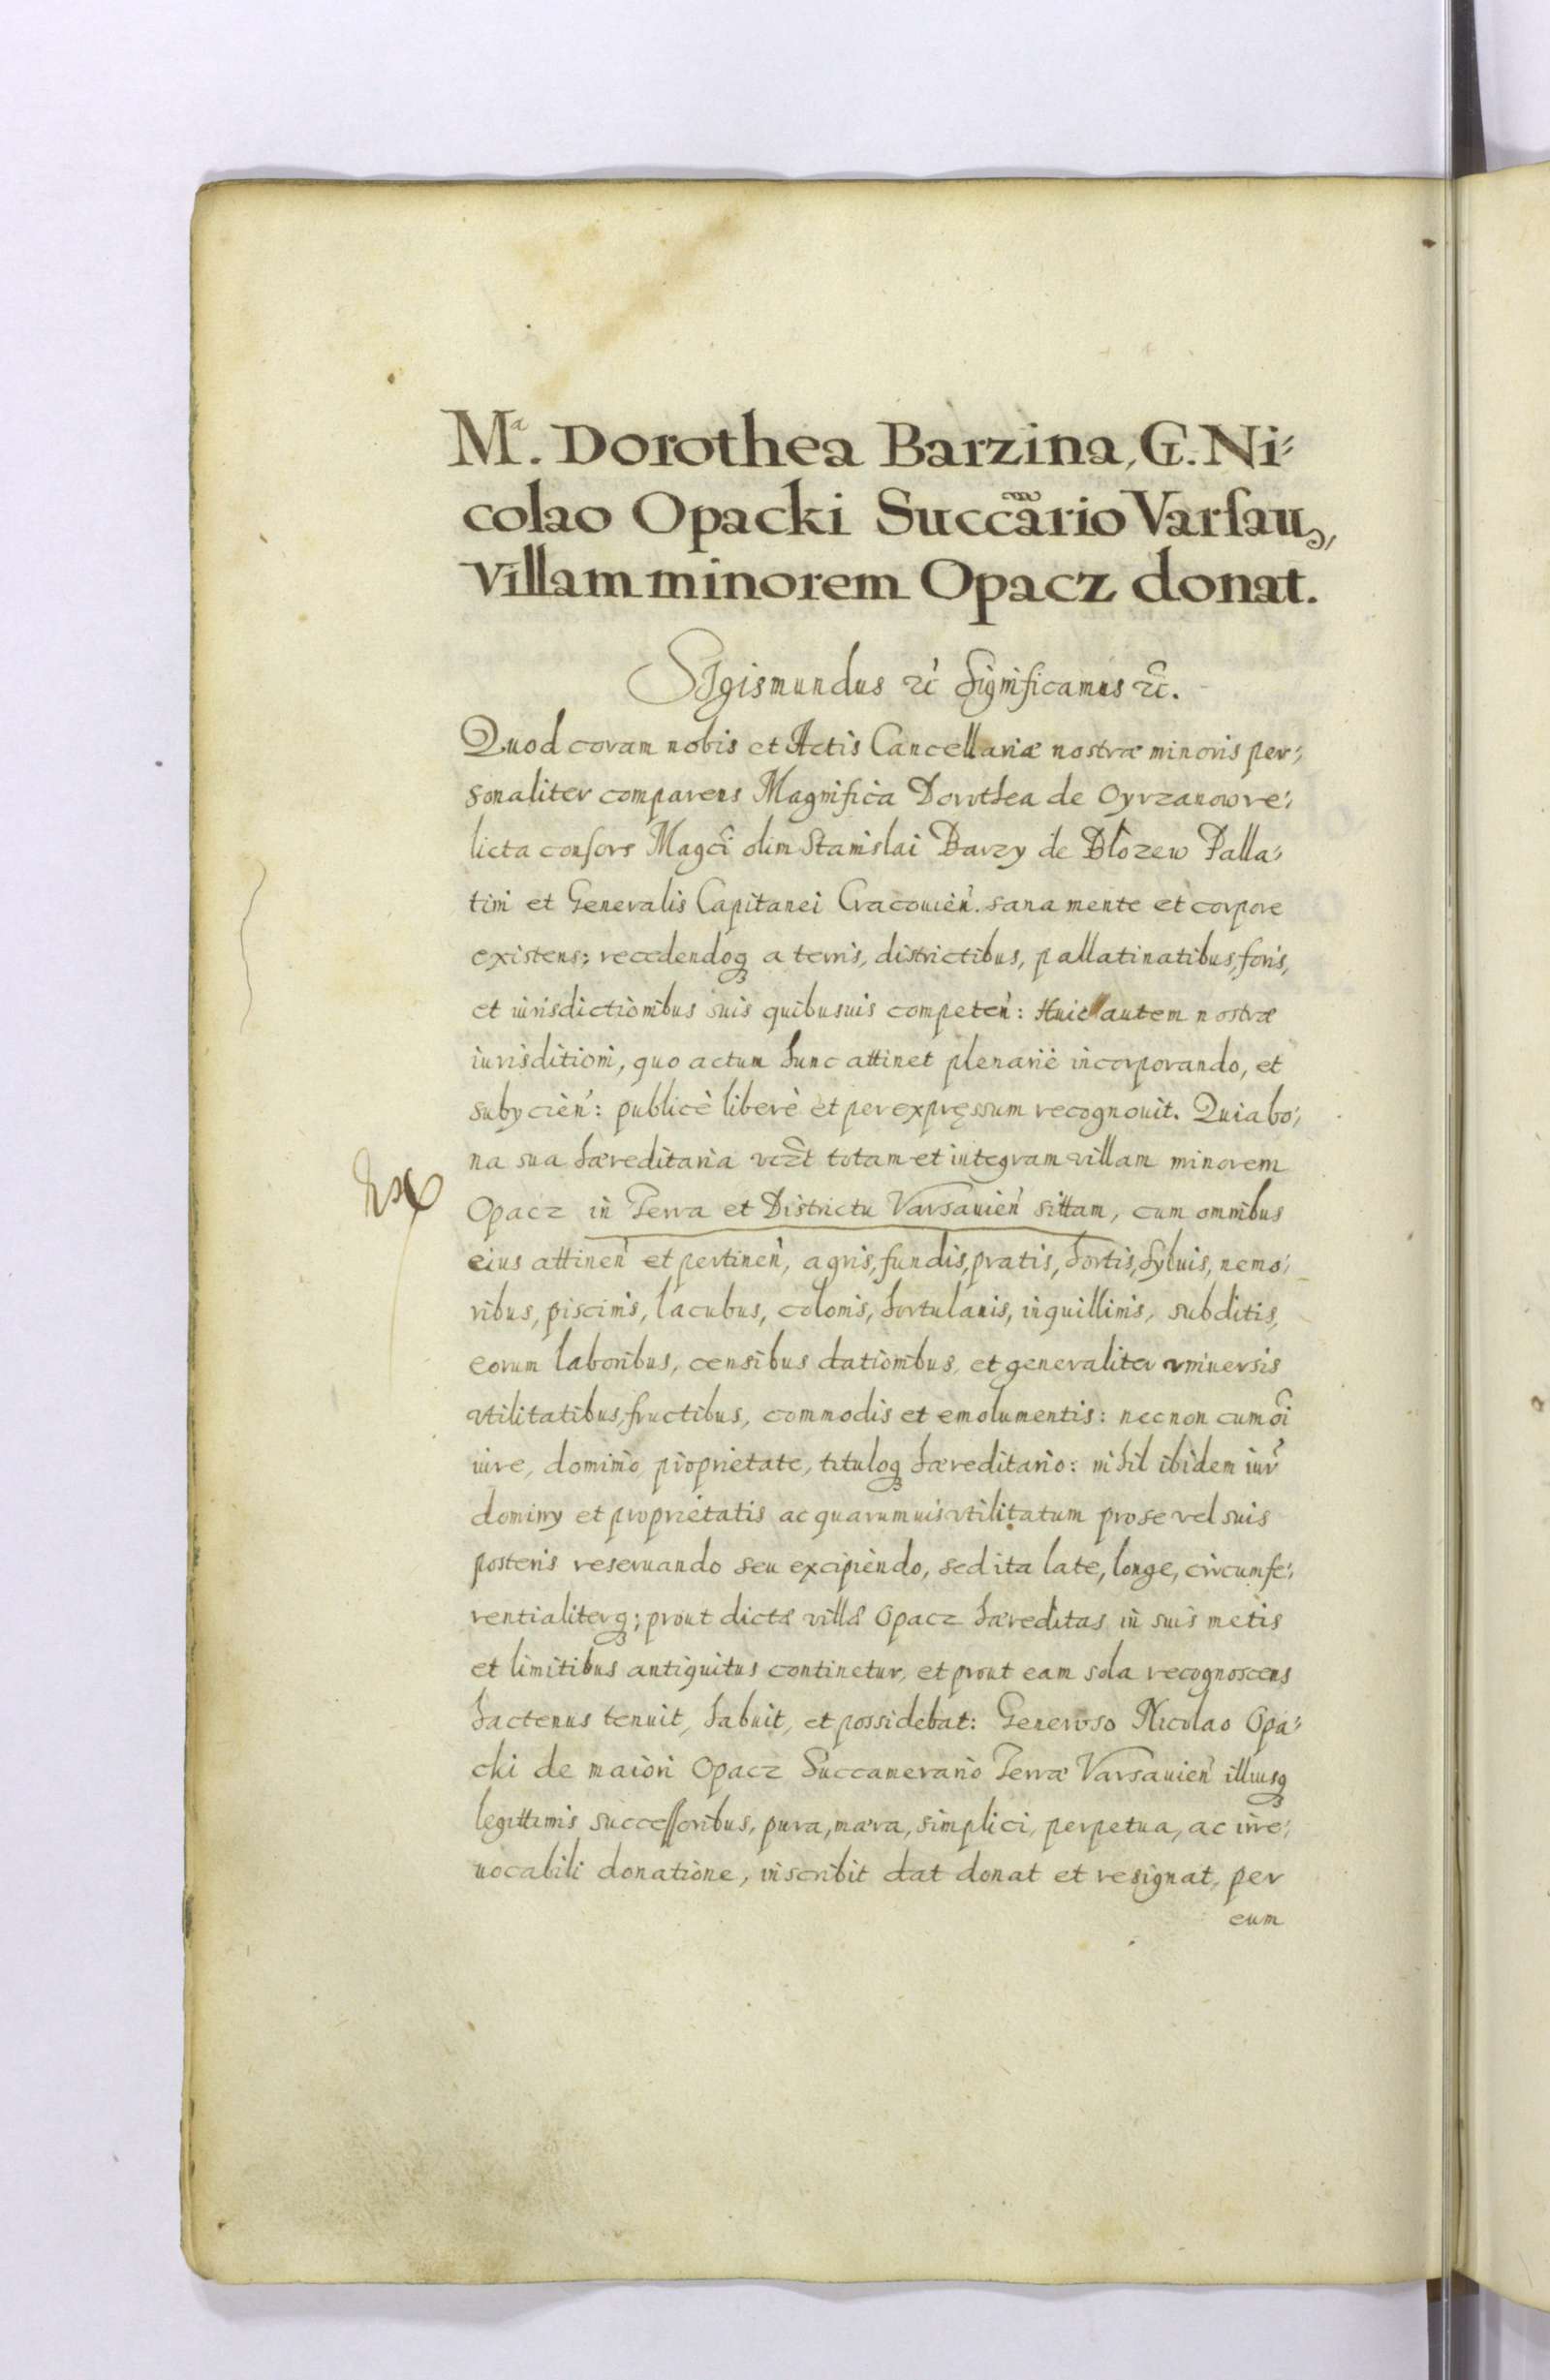 Mª. Dorothea Barzina, G. Ni⸗
colao Opacki Succãrio Varsau̇,
villam minorem Opacz donat.
SIgismundus ꝛc̃ significamus ꝛc̃.
Quod coram nobis et Actis Cancellariæ nostræ minoris per⸗
sonaliter comparens Magnifica Dorothea de Oyrzanow re⸗
licta consors Magcĩ olim Stanislai Barzy de Błozew Palla⸗
tini et Generalis Capitanei Cracouień. sana mente et corpore
existens; recedendoq̃ a terris, districtibus, pallatinatibus, foris,
et iurisdictionibus suis quibusuis competeń: Huic autem nostræ
iurisditioni, quo actum hunc attinet plenariè incorporando, et
subycień: publicè liberè et per expręssum recognouit. Quia bo⸗
na sua hæreditaria vcz̃t totam et integram villam minorem
Opacz in Terra et Districtu Varsauień sittam, cum omnibus
eius attineń et pertineń, agris, fundis, pratis, hortis, syluis, nemo⸗
ribus, piscinis, lacubus, colonis, hortulanis, inquillinis, subditis,
eorum laboribus, censibus dationibus, et generaliter vniuersis
vtilitatibus, fructibus, commodis et emolumentis: nec non cum oĩ
iure, dominio proprietate, tituloq̃ hæreditario: nihil ibidem iur̃
dominy et proprietatis ac quarumuis vtilitatum pro se vel suis
posteris reseruando seu excipiendo, sed ita late, longe, circumfe⸗
rentialiterq̃; prout dicta villa Opacz hæreditas in suis metis
et limitibus antiquitus continetur, et prout eam sola recognoscens
hactenus tenuit, habuit, et possidebat: Generoso Nicolao Opa⸗
cki de maiori Opacz Succamerario Terræ Varsauień illiusq̃
legittimis successoribus, pura, mæra, simplici, perpetua, ac irre⸗
uocabili donatione, inscribit dat donat et resignat, per
eum